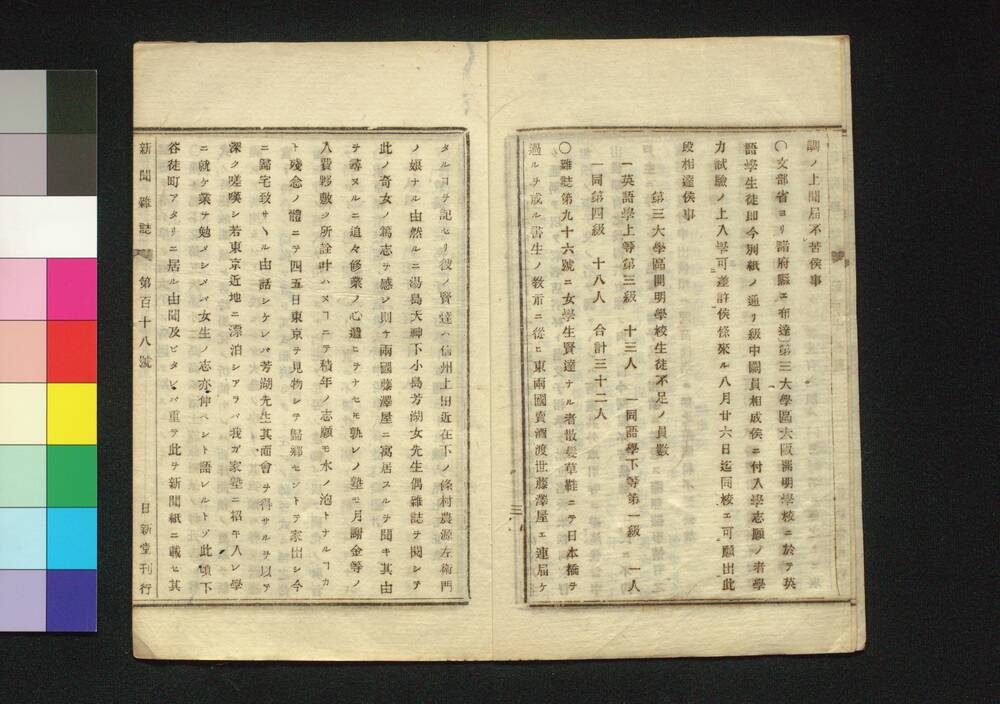 調ノ上聞屆不苦侯事
〇文部省ヨリ諸府縣エ布達第三大學區大阪開明學校ニ於テ英
語學生徒即今別紙ノ通リ級中闕員相成侯ニ付入學志願ノ者學
力試驗ノ上入學可差許侯條來ル八月廿六日迄同校エ可願出此
段相達侯事
第三大學區開明學校生徒不足ノ員數
一英語學上等第三級 十三人 一同語學下等第一級 一人
一同第四級 十八人 合計三十二人
〇雜誌第九十六號ニ女學生賢達ナル者散髮草鞋ニテ日本橋ヲ
過ルヲ或ル書生ノ教示ニ從ヒ東兩國賣酒渡世藤澤屋エ連屆ケ
三
タルコヲ記セリ彼ノ賢達ハ信州上田近在下ノ條村農源左衛門
ノ娘ナル由然ルニ湯島天神下小島芳湖女先生偶雜誌ヲ閱シテ
此ノ奇女ノ篤志ヲ感シ則ケ兩國藤澤屋ニ寓居スルヲ聞キ其由
ヲ尋ヌルニ追々修業ノ心遣ヒヲナセモ孰レノ塾モ月謝金等ノ
入費夥敷ク所詮叶ハヌコニテ積年ノ志願モ水ノ泡トナルコカ
ト殘念ノ體ニテ四五日東京ヲ見物シテ歸鄉セントテ家出シ今
ニ歸宅致サヽル由話シケレバ芳湖先生其面會ヲ得サルヲ以テ
深ク嗟嘆シ若東京近地ニ漂泊シアラバ我ガ家塾ニ招キ入レ學
ニ就ケ業ヲ勉メシメバ女生ノ志亦伸ベシト語レルトゾ此頃下
谷徒町アタリニ居ル由聞及ビタレバ重テ此ヲ新聞紙ニ載セ其
新聞雜誌 第百十八號 日新堂刊行